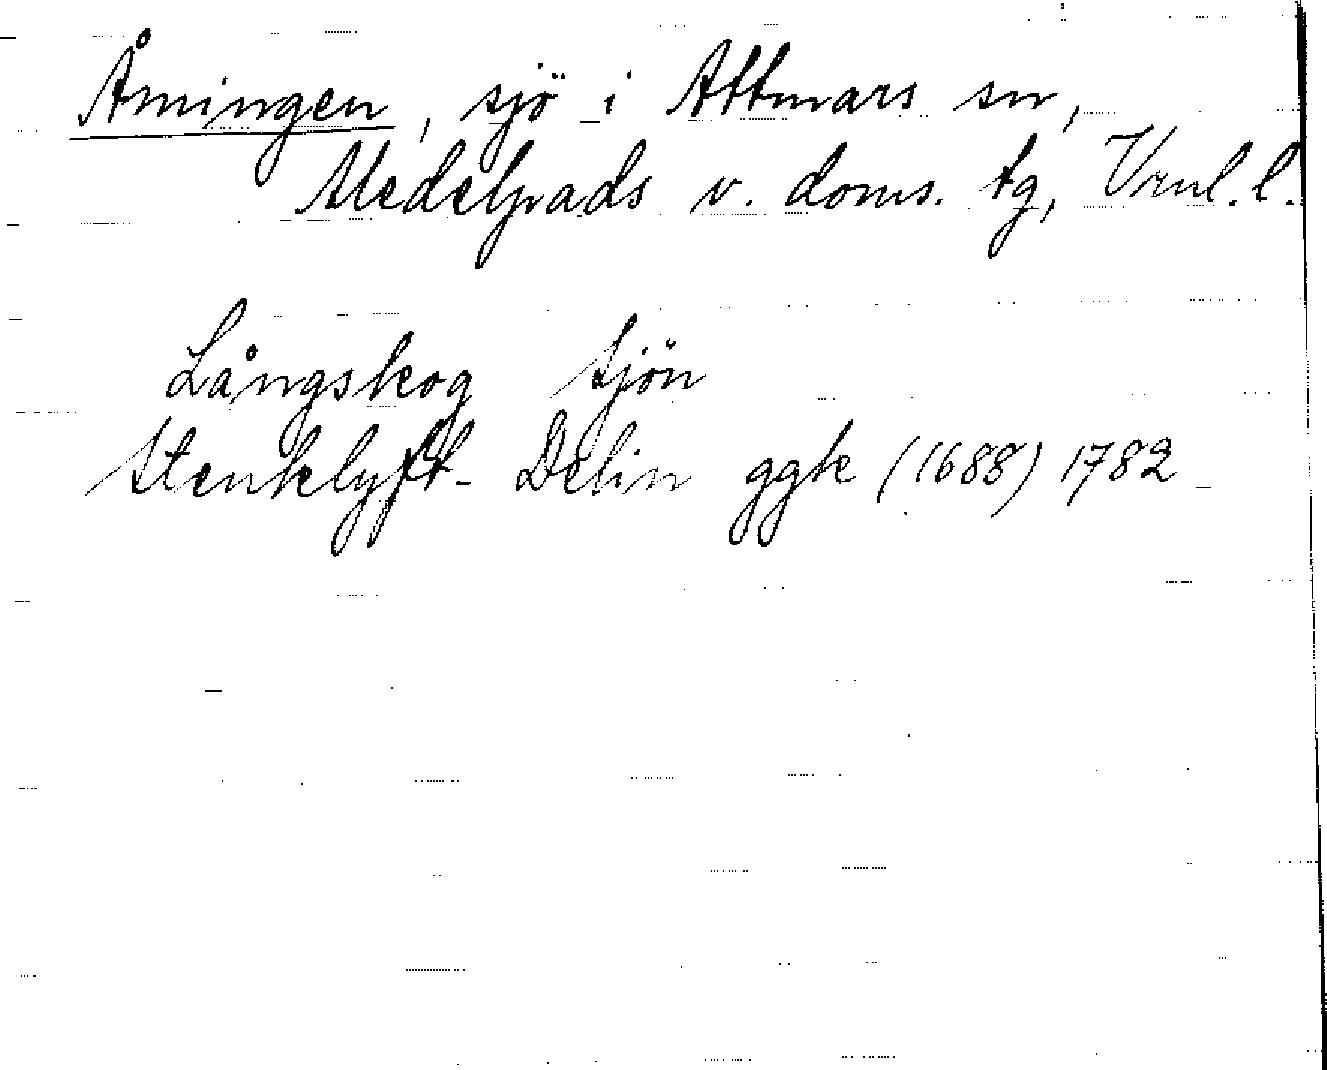 Åmingen, sjö i Attmars sn,
Medelpads v. doms. tg, Vrnl. l.
Långskog sjön
Stenklyft- Delin ggk (1688) 1782